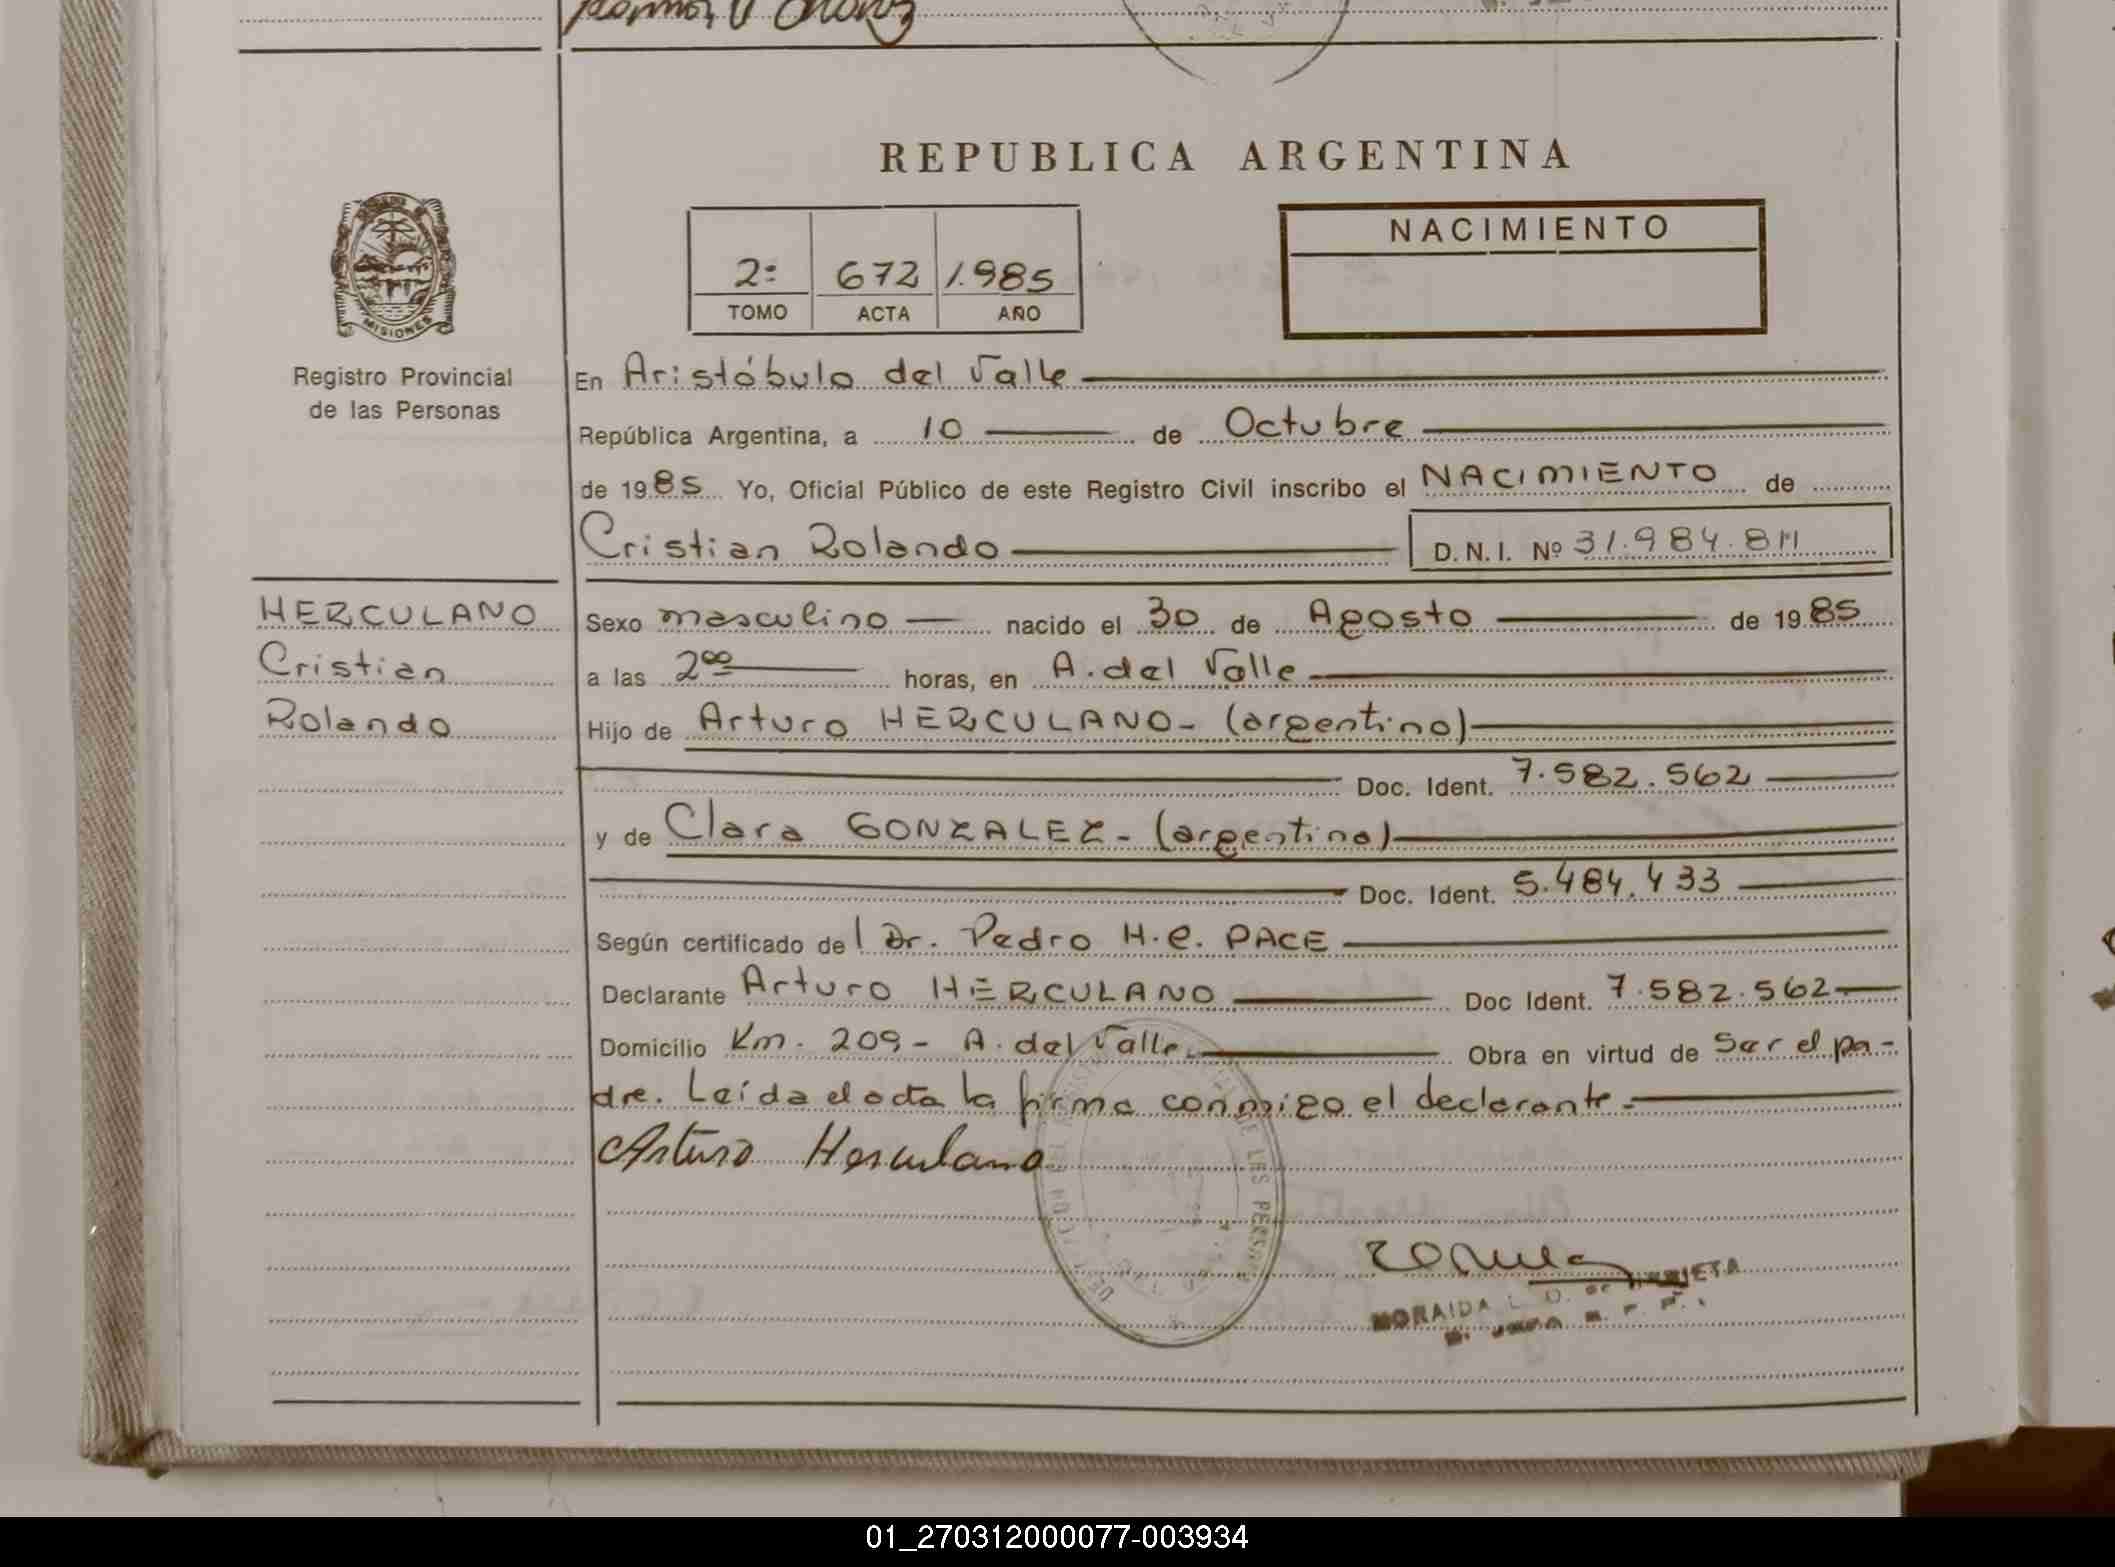 REPUBLICA ARGENTINA
MISIONES
Registro Provincial
de las Personas
2º 672 1.985
TOMO ACTA AÑO
NACIMIENTO
En Aristóbulo del Valle
República Argentina, a 10 de Octubre
de 1985 Yo, Oficial Público de este Registro Civil inscribo el NACIMIENTO de
Cristian Rolando D.N.I. Nº 31.984.811
HERCULANO
Cristian
Rolando
Sexo masculino nacido el 30 de Agosto de 1985
a las 2ºº horas, en A. del Valle
Hijo de Arturo HERCULANO- (argentino)
Doc. Ident. 7.582.562
y de Clara GONZALEZ- (argentina)
Doc. Ident. 5.484.433
Según certificado del Dr. Pedro H.C. PACE
Declarante Arturo HERCULANO Doc Ident. 7.582.562
Domicilio Km. 209- A. del Valle. Obra en virtud de Ser el pa-
dre. Leída el acta la firma conmigo el declarante.-
Arturo Herculano
MORAIDA L. D. de
01_270312000077-003934